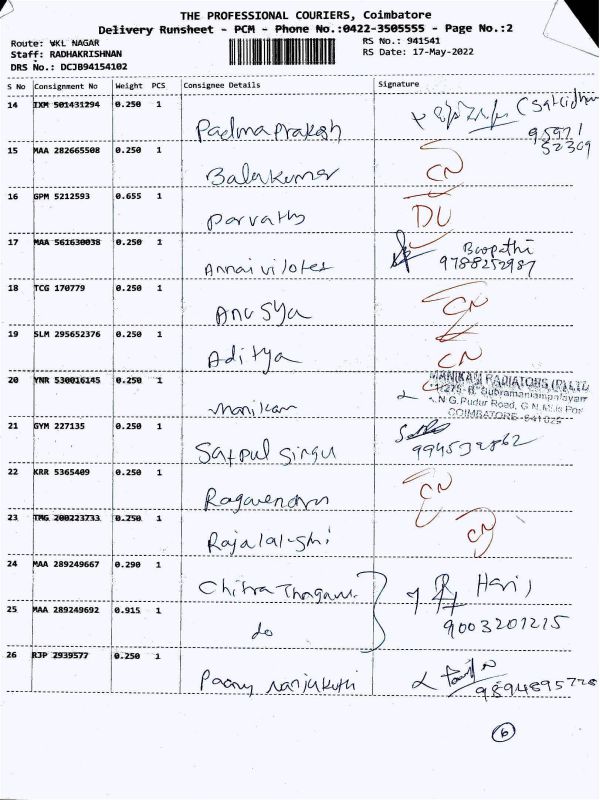 THE PROFESSIONAL COURIERS, Coimbatore
Delivery Runsheet - PCM - Phone No.:0422-3505555 - Page No.:2
Route: WKL NAGAR
Staff: RADHAKRISHNAN
DRS No.: DCJB94154102
RS No.: 941541
RS Date: 17-May-2022
S No Consignment No Weight PCS Consignee Details Signature
14 IXM 501431294 0.250 1 Padma Prakash
15 MAA 282665508 0.250 1 Balakumar CN
16 GPM 5212593 0.655 1 Parvathy DU
17 MAA 561630038 0.250 1 Annai vilotes Boopathi
9788252987
18 TCG 170779 0.250 1 Anusya CN
19 SLM 295652376 0.250 1 Aditya CN
20 YNR 530016145 0.250 1 manikam MANIKAM RADIATORS (P) LTD
N.G.Pudur Road, G.N.Mills Post
COIMBATORE-641029
21 GYM 227135 0.250 1 Satpul Singu
22 KRR 5365409 0.250 1 Ragavendra CN
23 TMG 200223733 0.250 1 CN
24 MAA 289249667 0.290 1 Chitra Hari
25 MAA 289249692 0.915 1 do 9003201215
26 RJP 2939577 0.250 1
9894895728
6